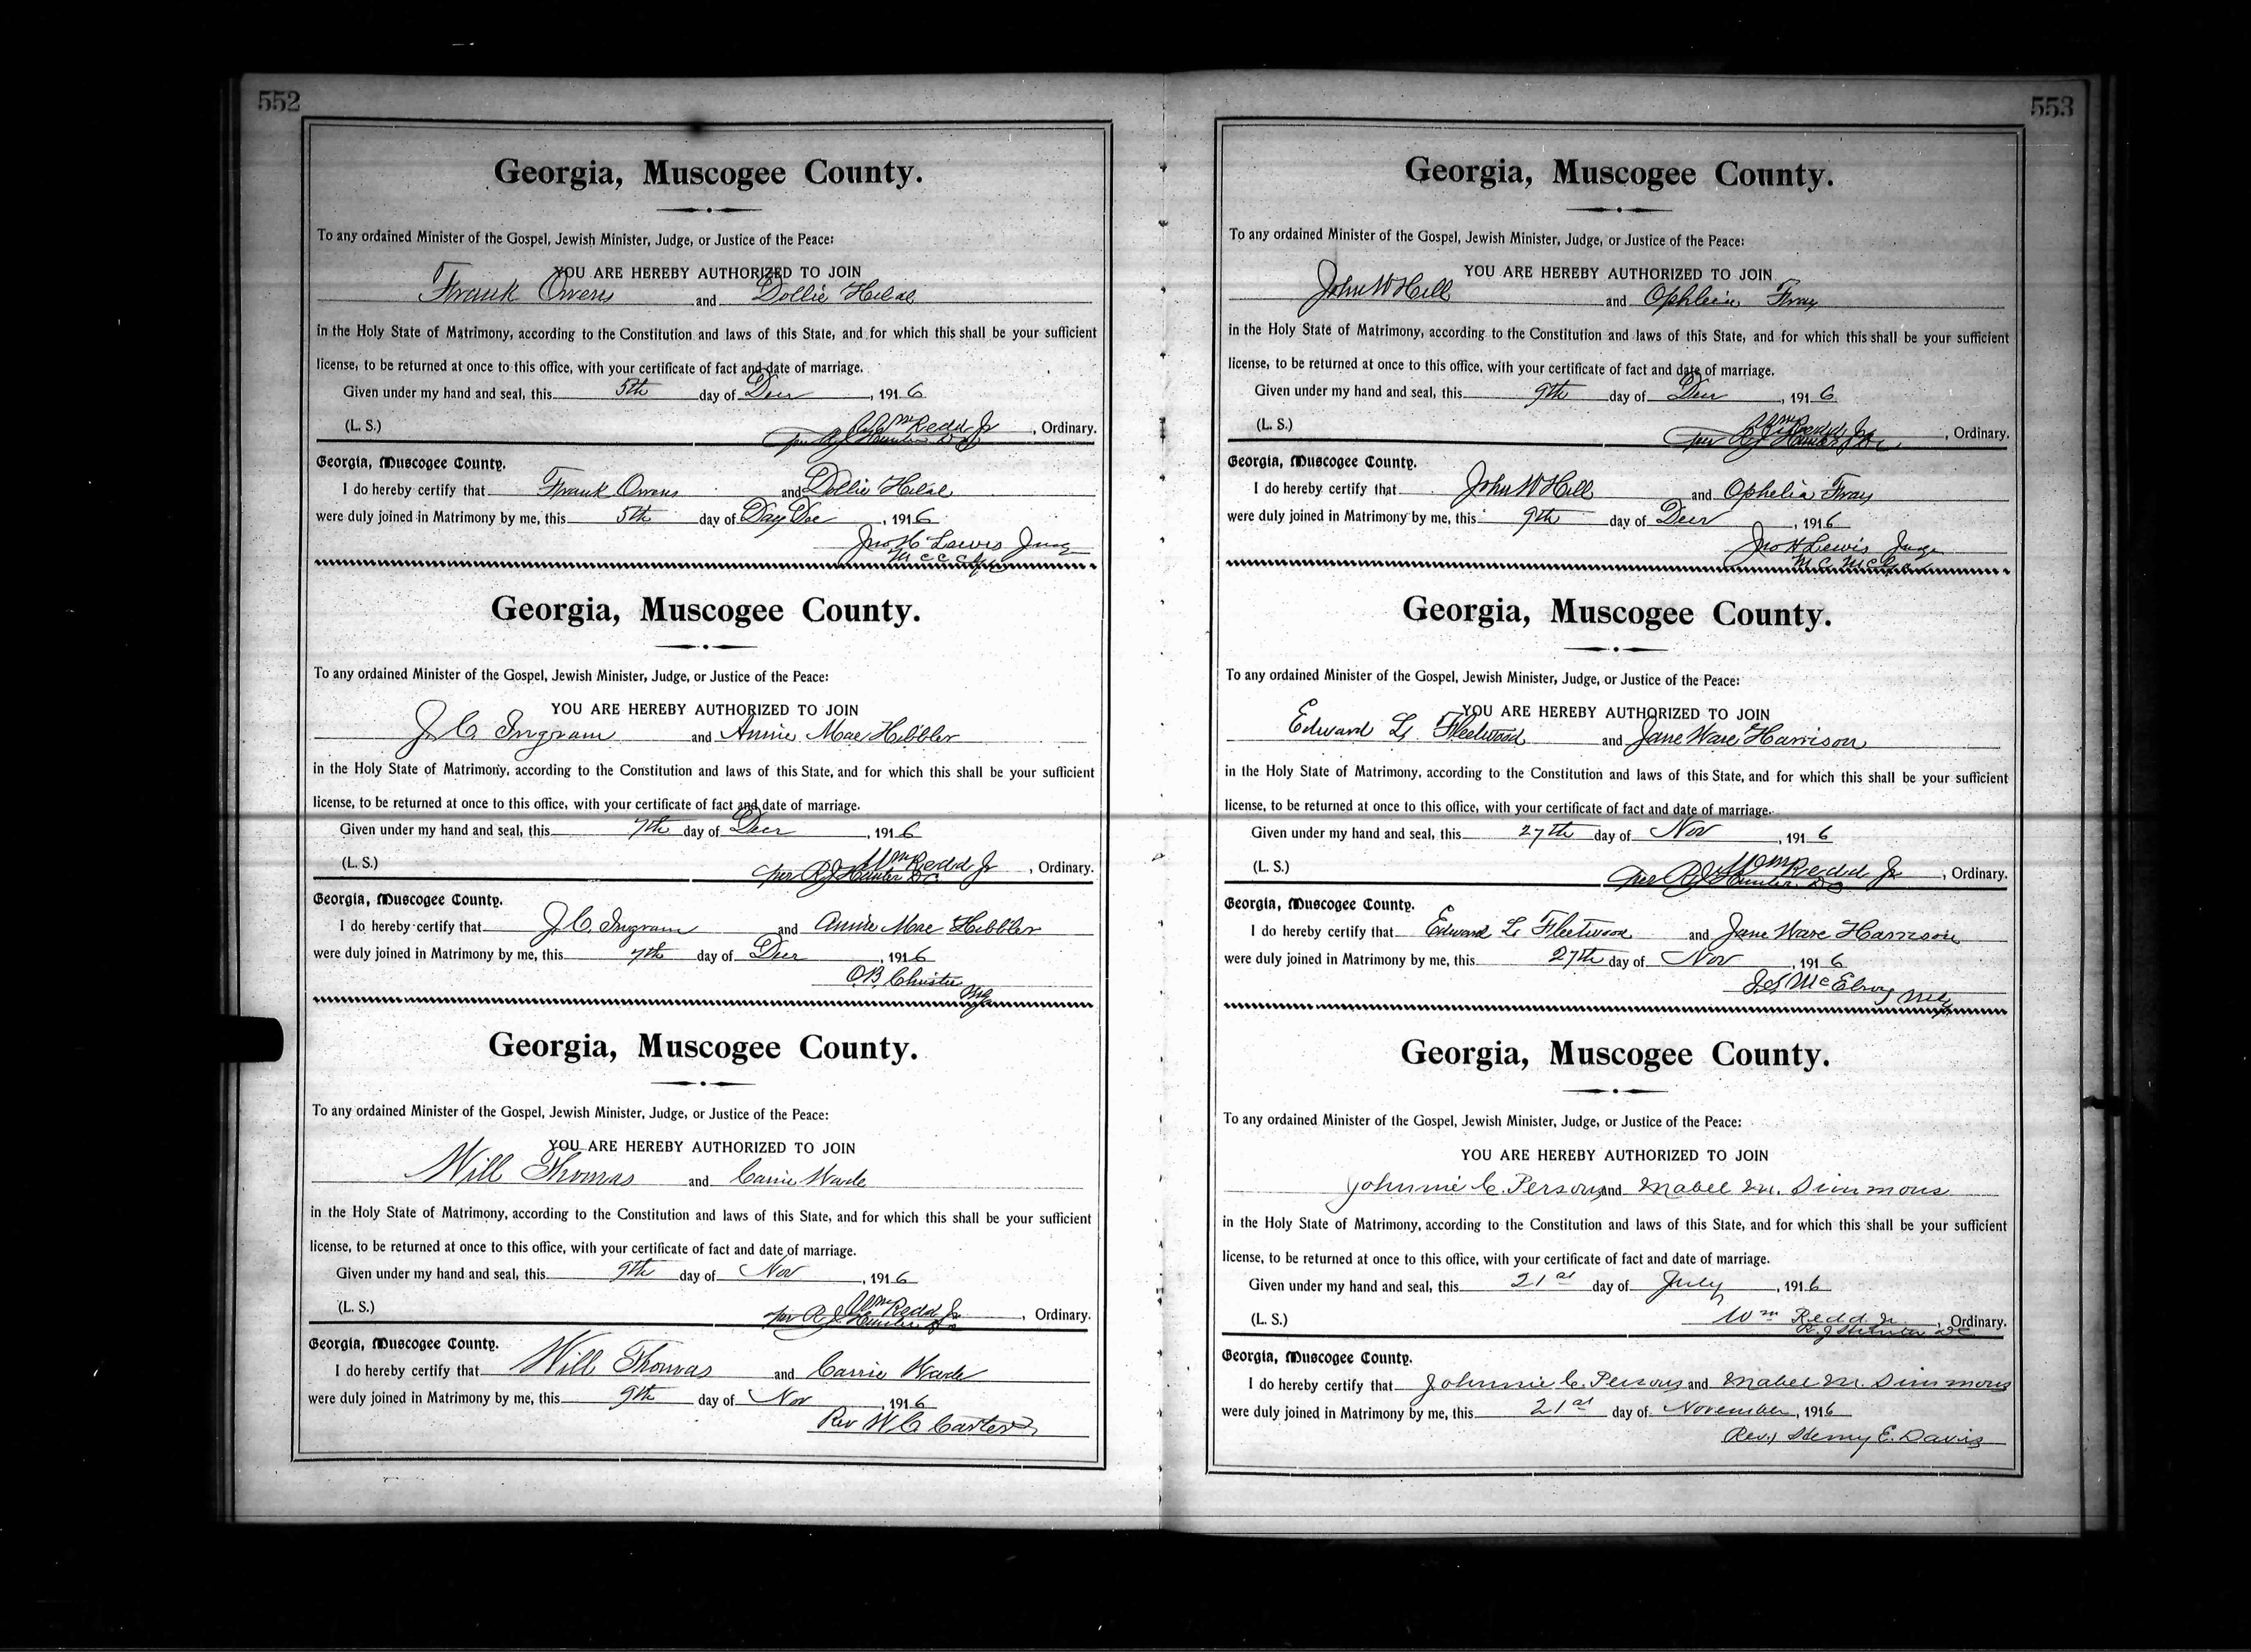 552
Georgia, Muscogee County.
To any ordained Minister of the Gospel, Jewish Minister, Judge, or Justice of the Peace:
YOU ARE HEREBY AUTHORIZED TO JOIN
Frank Owens and Dollie
in the Holy State of Matrimony, according to the Constitution and laws of this State, and for which this shall be your sufficient
license, to be returned at once to this office, with your certificate of fact and date of marriage.
Given under my hand and seal, this 5th day of Decr, 1916
(L. S.) Wm Redd Jr, Ordinary.
per R J Hunter D C
Georgia, Muscogee County.
I do hereby certify that Frank Owens and Dollie
were duly joined in Matrimony by me, this 5th day of Day Dec, 1916
Jno H Lewis Judge
Georgia, Muscogee County.
To any ordained Minister of the Gospel, Jewish Minister, Judge, or Justice of the Peace:
YOU ARE HEREBY AUTHORIZED TO JOIN
J. C. Ingram and Annie Mae Hibbler
in the Holy State of Matrimony, according to the Constitution and laws of this State, and for which this shall be your sufficient
license, to be returned at once to this office, with your certificate of fact and date of marriage.
Given under my hand and seal, this 7th day of Decr, 1916
(L. S.) Wm Redd Jr, Ordinary.
per R J Hunter D C
Georgia, Muscogee County.
I do hereby certify that J. C. Ingram and Annie Mae Hibbler
were duly joined in Matrimony by me, this 7th day of Decr, 1916
O. B. Christie
Mg
Georgia, Muscogee County.
To any ordained Minister of the Gospel, Jewish Minister, Judge, or Justice of the Peace:
YOU ARE HEREBY AUTHORIZED TO JOIN
Will Thomas and Carrie Wade
in the Holy State of Matrimony, according to the Constitution and laws of this State, and for which this shall be your sufficient
license, to be returned at once to this office, with your certificate of fact and date of marriage.
Given under my hand and seal, this 9th day of Nov, 1916
(L. S.) Wm Redd Jr, Ordinary.
per R J Hunter D C
Georgia, Muscogee County.
I do hereby certify that Will Thomas and Carrie Wade
were duly joined in Matrimony by me, this 9th day of Nov, 1916
Rev W C Carter
553
Georgia, Muscogee County.
To any ordained Minister of the Gospel, Jewish Minister, Judge, or Justice of the Peace:
YOU ARE HEREBY AUTHORIZED TO JOIN
John W Hill and Ophleia Fray
in the Holy State of Matrimony, according to the Constitution and laws of this State, and for which this shall be your sufficient
license, to be returned at once to this office, with your certificate of fact and date of marriage.
Given under my hand and seal, this 9th day of Decr, 1916
(L. S.) Wm Redd Jr, Ordinary.
per R J Hunter D C
Georgia, Muscogee County.
I do hereby certify that John W Hill and Ophelia Fray
were duly joined in Matrimony by me, this 9th day of Decr, 1916
Jno H Lewis Judge
Georgia, Muscogee County.
To any ordained Minister of the Gospel, Jewish Minister, Judge, or Justice of the Peace:
YOU ARE HEREBY AUTHORIZED TO JOIN
Edward L. Fleetwood and Jane Ware Harrison
in the Holy State of Matrimony, according to the Constitution and laws of this State, and for which this shall be your sufficient
license, to be returned at once to this office, with your certificate of fact and date of marriage.
Given under my hand and seal, this 27th day of Nov, 1916
(L. S.) Wm Redd Jr, Ordinary.
per R J Hunter D C
Georgia, Muscogee County.
I do hereby certify that Edward L. Fleetwood and Jane Ware Harrison
were duly joined in Matrimony by me, this 27th day of Nov, 1916
McElroy
Georgia, Muscogee County.
To any ordained Minister of the Gospel, Jewish Minister, Judge, or Justice of the Peace:
YOU ARE HEREBY AUTHORIZED TO JOIN
Johnnie C. Persons and Mabel M. Simmons
in the Holy State of Matrimony, according to the Constitution and laws of this State, and for which this shall be your sufficient
license, to be returned at once to this office, with your certificate of fact and date of marriage.
Given under my hand and seal, this 21st day of July, 1916
(L. S.) Wm Redd Jr., Ordinary.
R. J Hunter D C
Georgia, Muscogee County.
I do hereby certify that Johnnie C. Persons and Mabel M. Simmons
were duly joined in Matrimony by me, this 21st day of November, 1916
Rev. Henry E. Davis